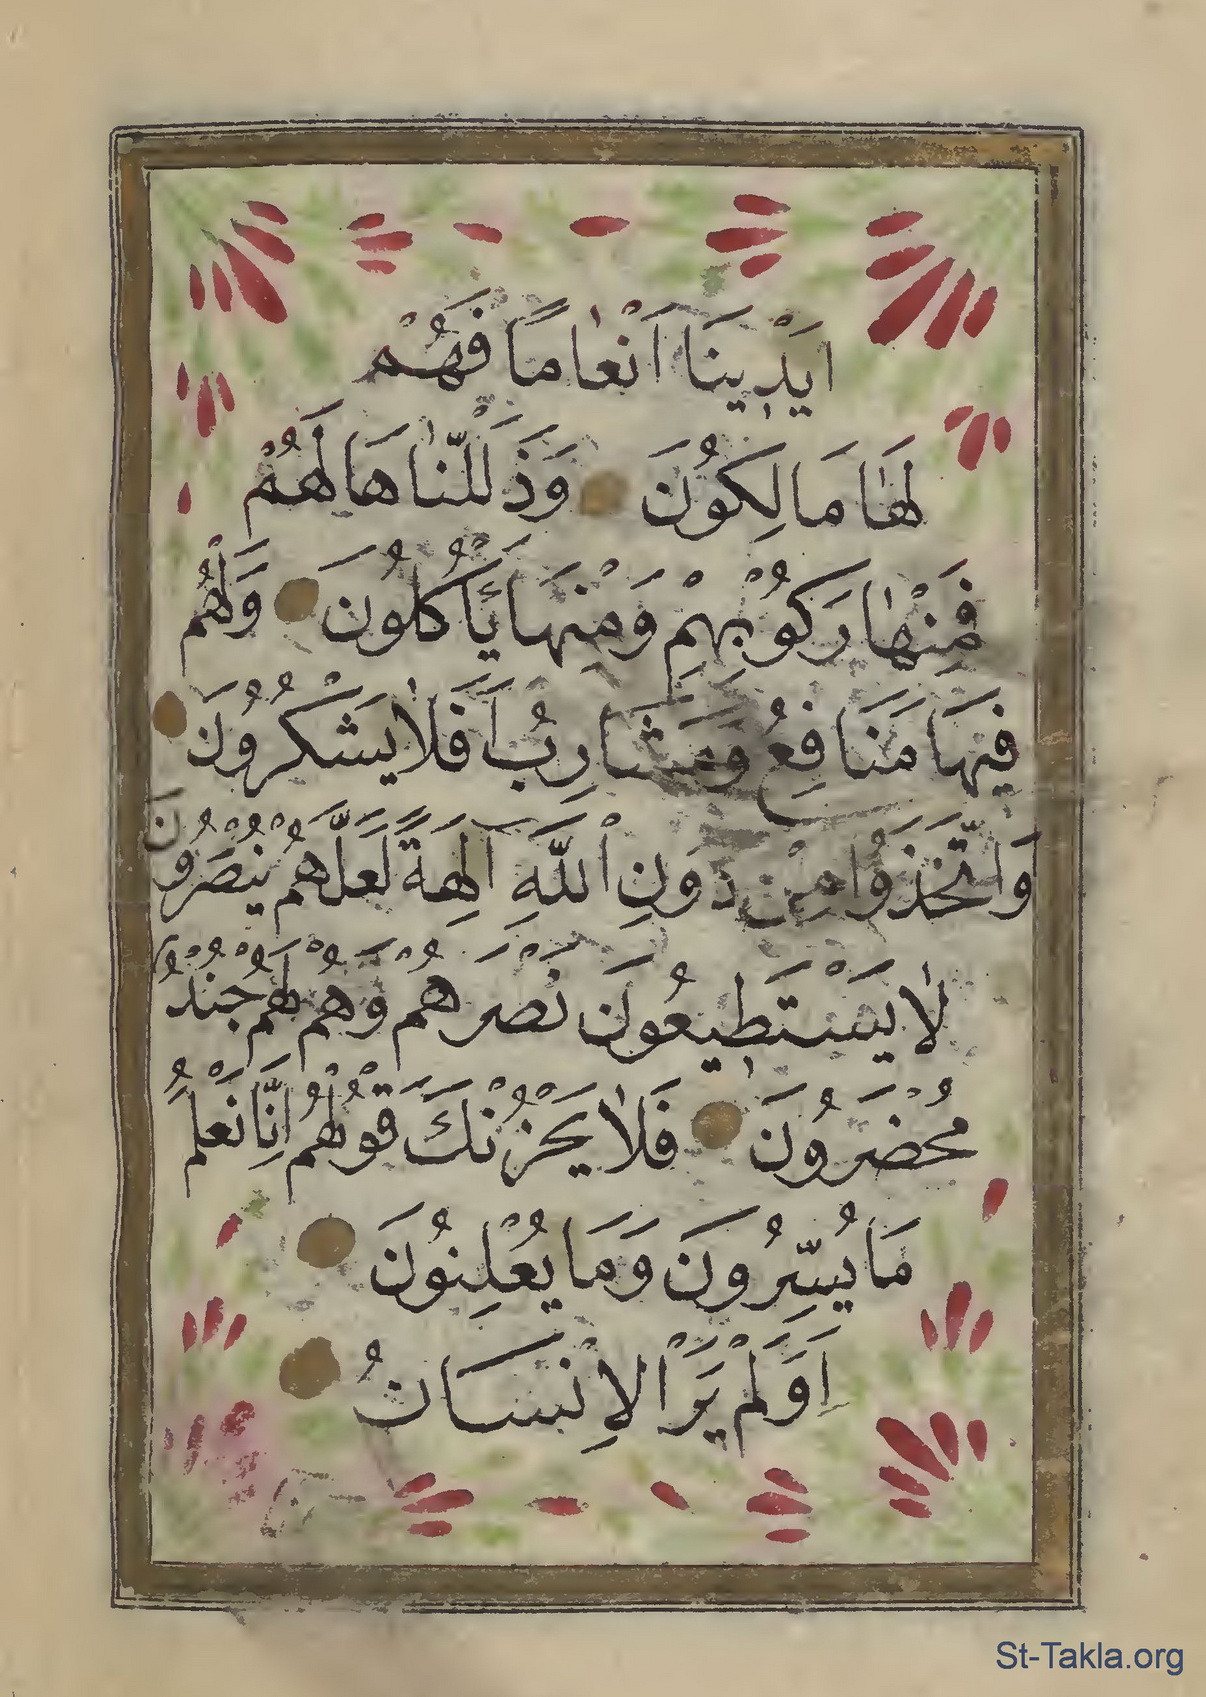 اَيْدِينَا اَنْعَامًا فَهُمْ
لَهَا مَالِكُونَ وَذَلَّلْنَاهَا لَهُمْ
فَمِنْهَا رَكُوبُهُمْ وَمِنْهَا يَأْكُلُونَ وَلَهُمْ
فِيهَا مَنَافِعُ وَمَشَارِبُ اَفَلَا يَشْكُرُونَ
وَاتَّخَذُوا مِنْ دُونِ اللّٰهِ آلِهَةً لَعَلَّهُمْ يُنْصَرُونَ
لَا يَسْتَطِيعُونَ نَصْرَهُمْ وَهُمْ لَهُمْ جُنْدٌ
مُحْضَرُونَ فَلَا يَحْزُنْكَ قَوْلُهُمْ اِنَّا نَعْلَمُ
مَا يُسِرُّونَ وَمَا يُعْلِنُونَ
اَوَلَمْ يَرَ الْاِنْسَانُ
St-Takla.org